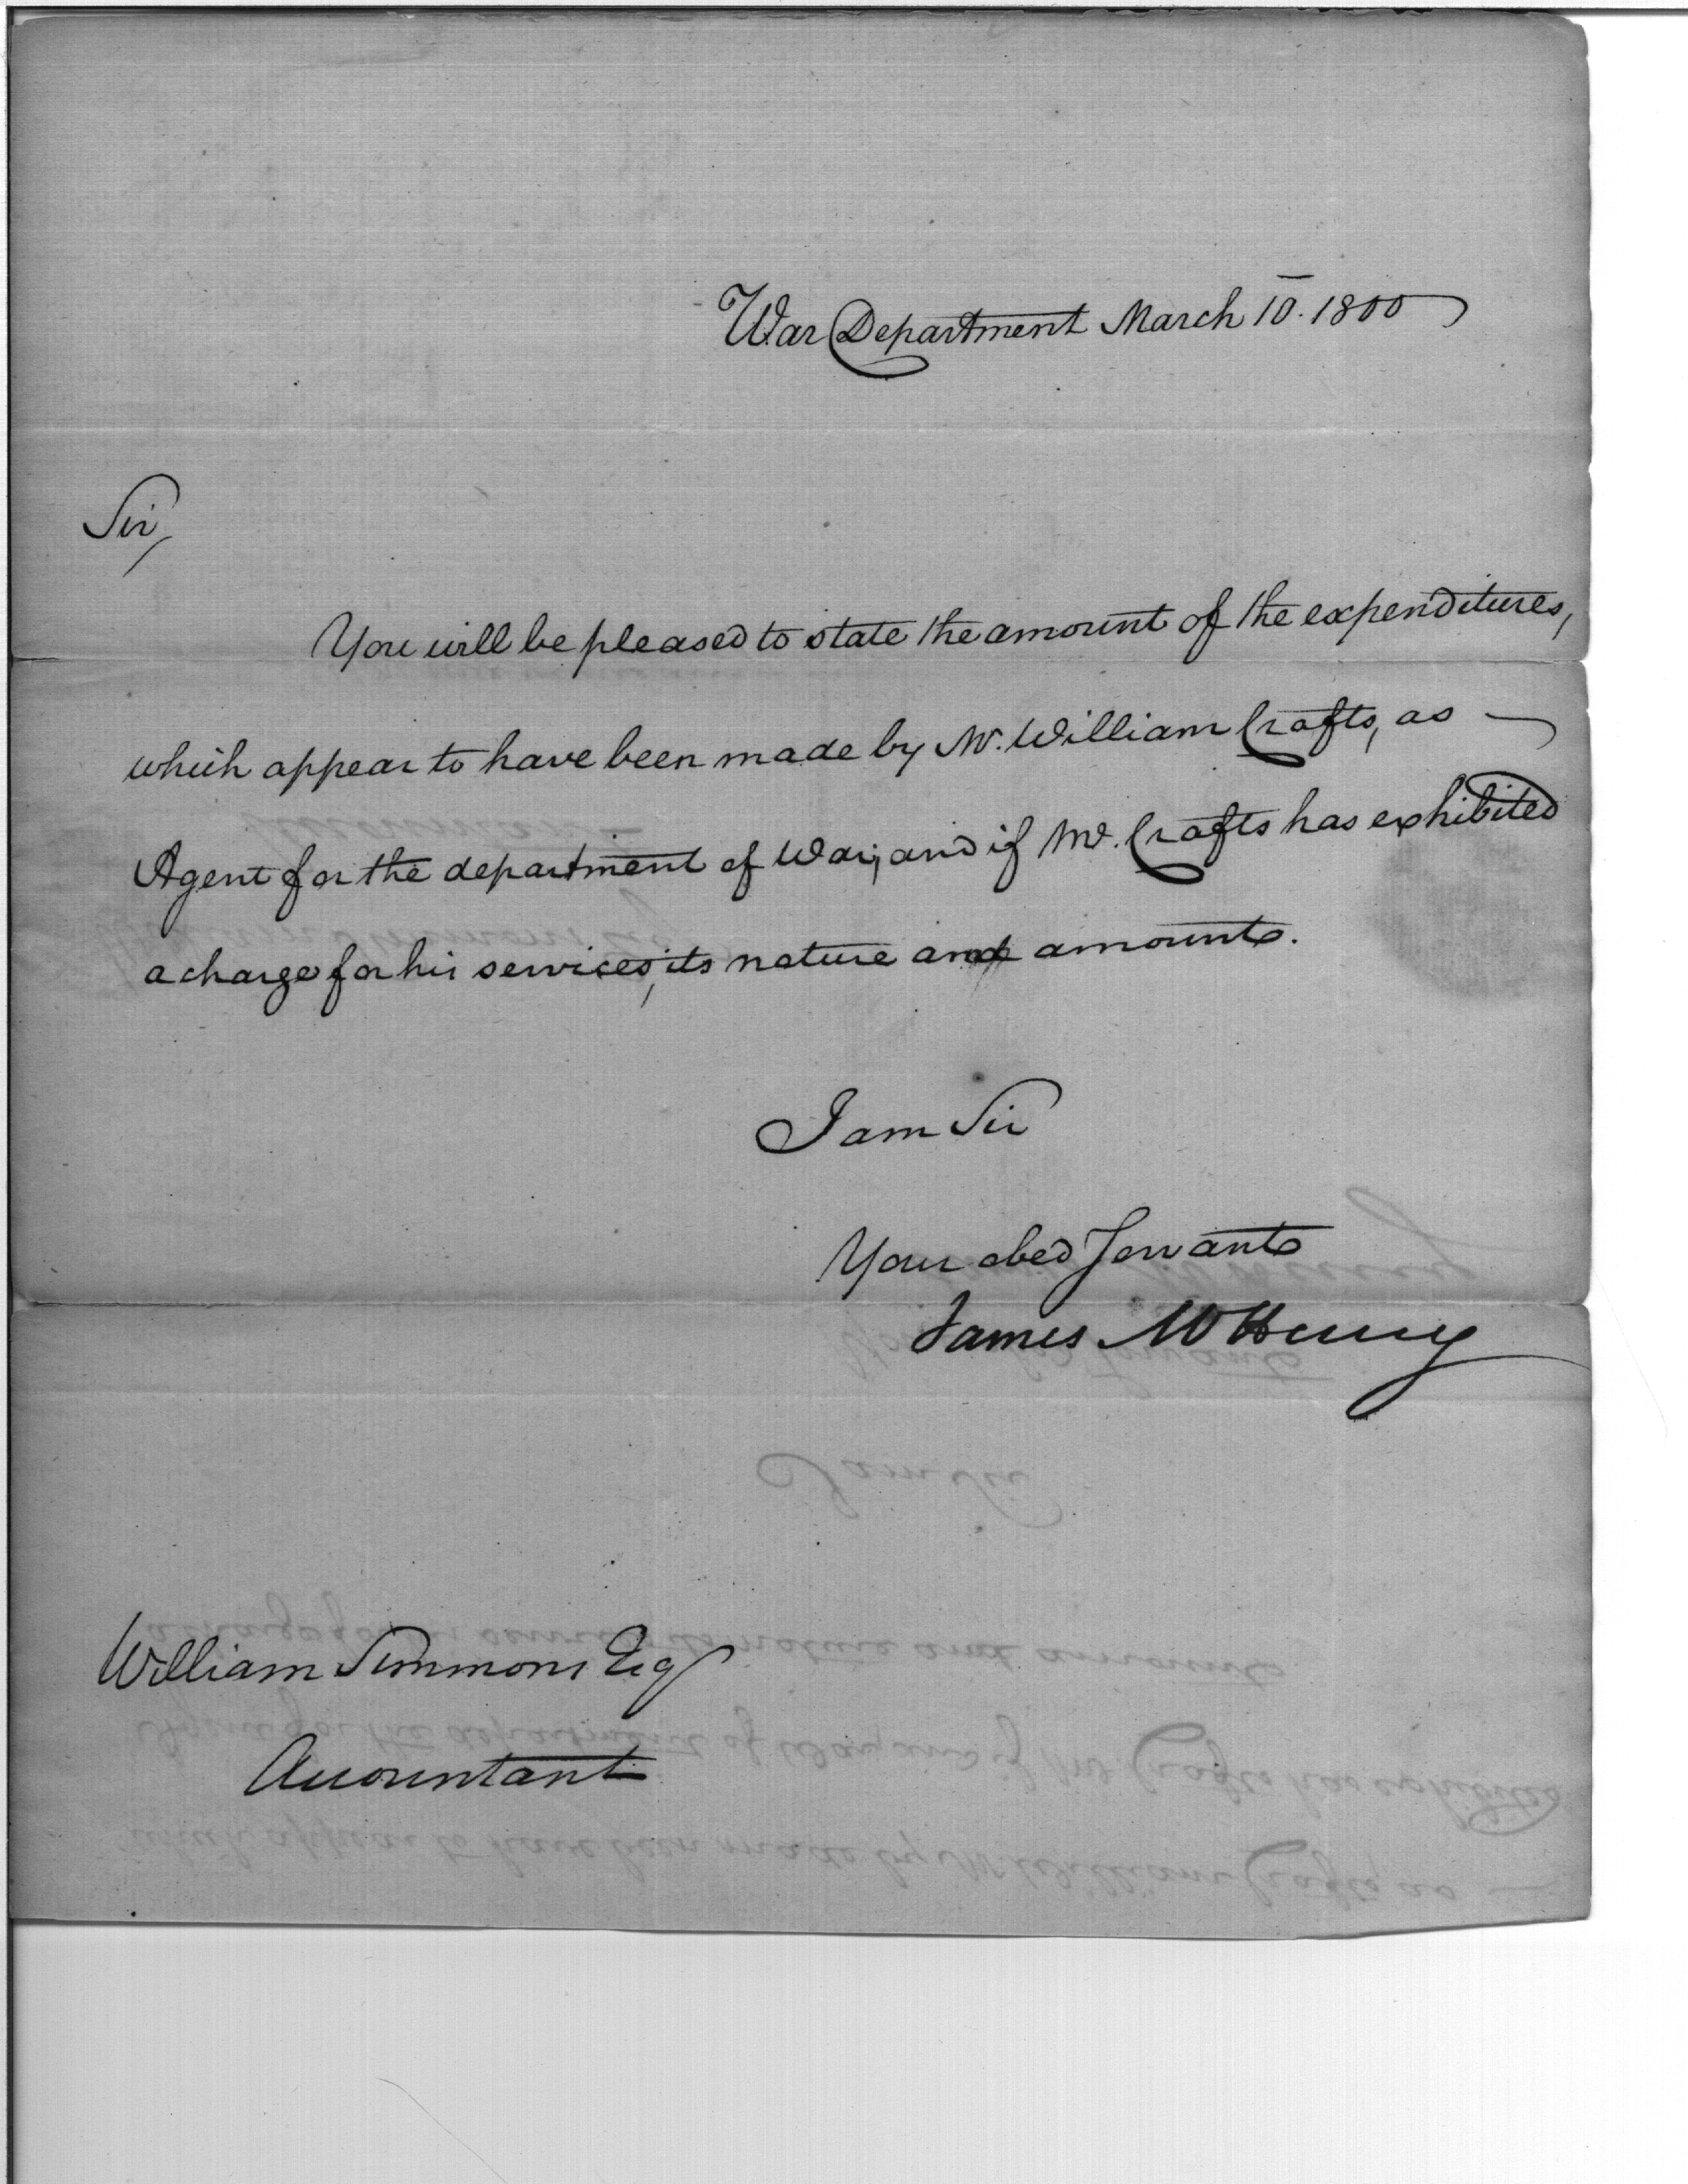 War Department March 10. 1800
Sir,
You will be pleased to state the amount of the expenditures,
which appear to have been made by Mr. William Crafts, as
Agent for the department of War; and if Mr. Crafts has exhibited
a charge for his services, its nature and amount.
I am Sir
Your obed Servant
James McHenry
William Simmons Esq
Accountant